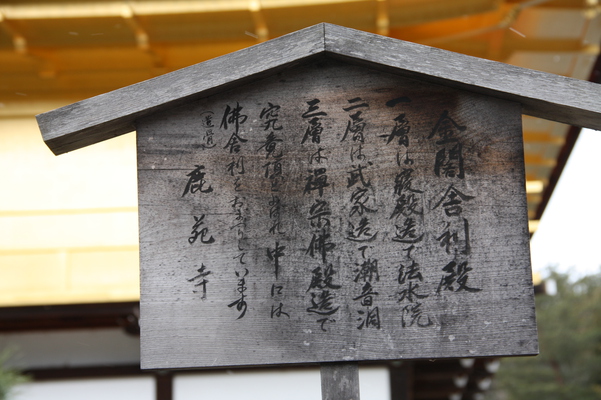 金閣舎利殿
一層は寝殿造で法水院
二層は武家造で潮音洞
三層は禅宗佛殿造で
究竟頂と申され中には
佛舎利をおまつりしています
鹿苑寺